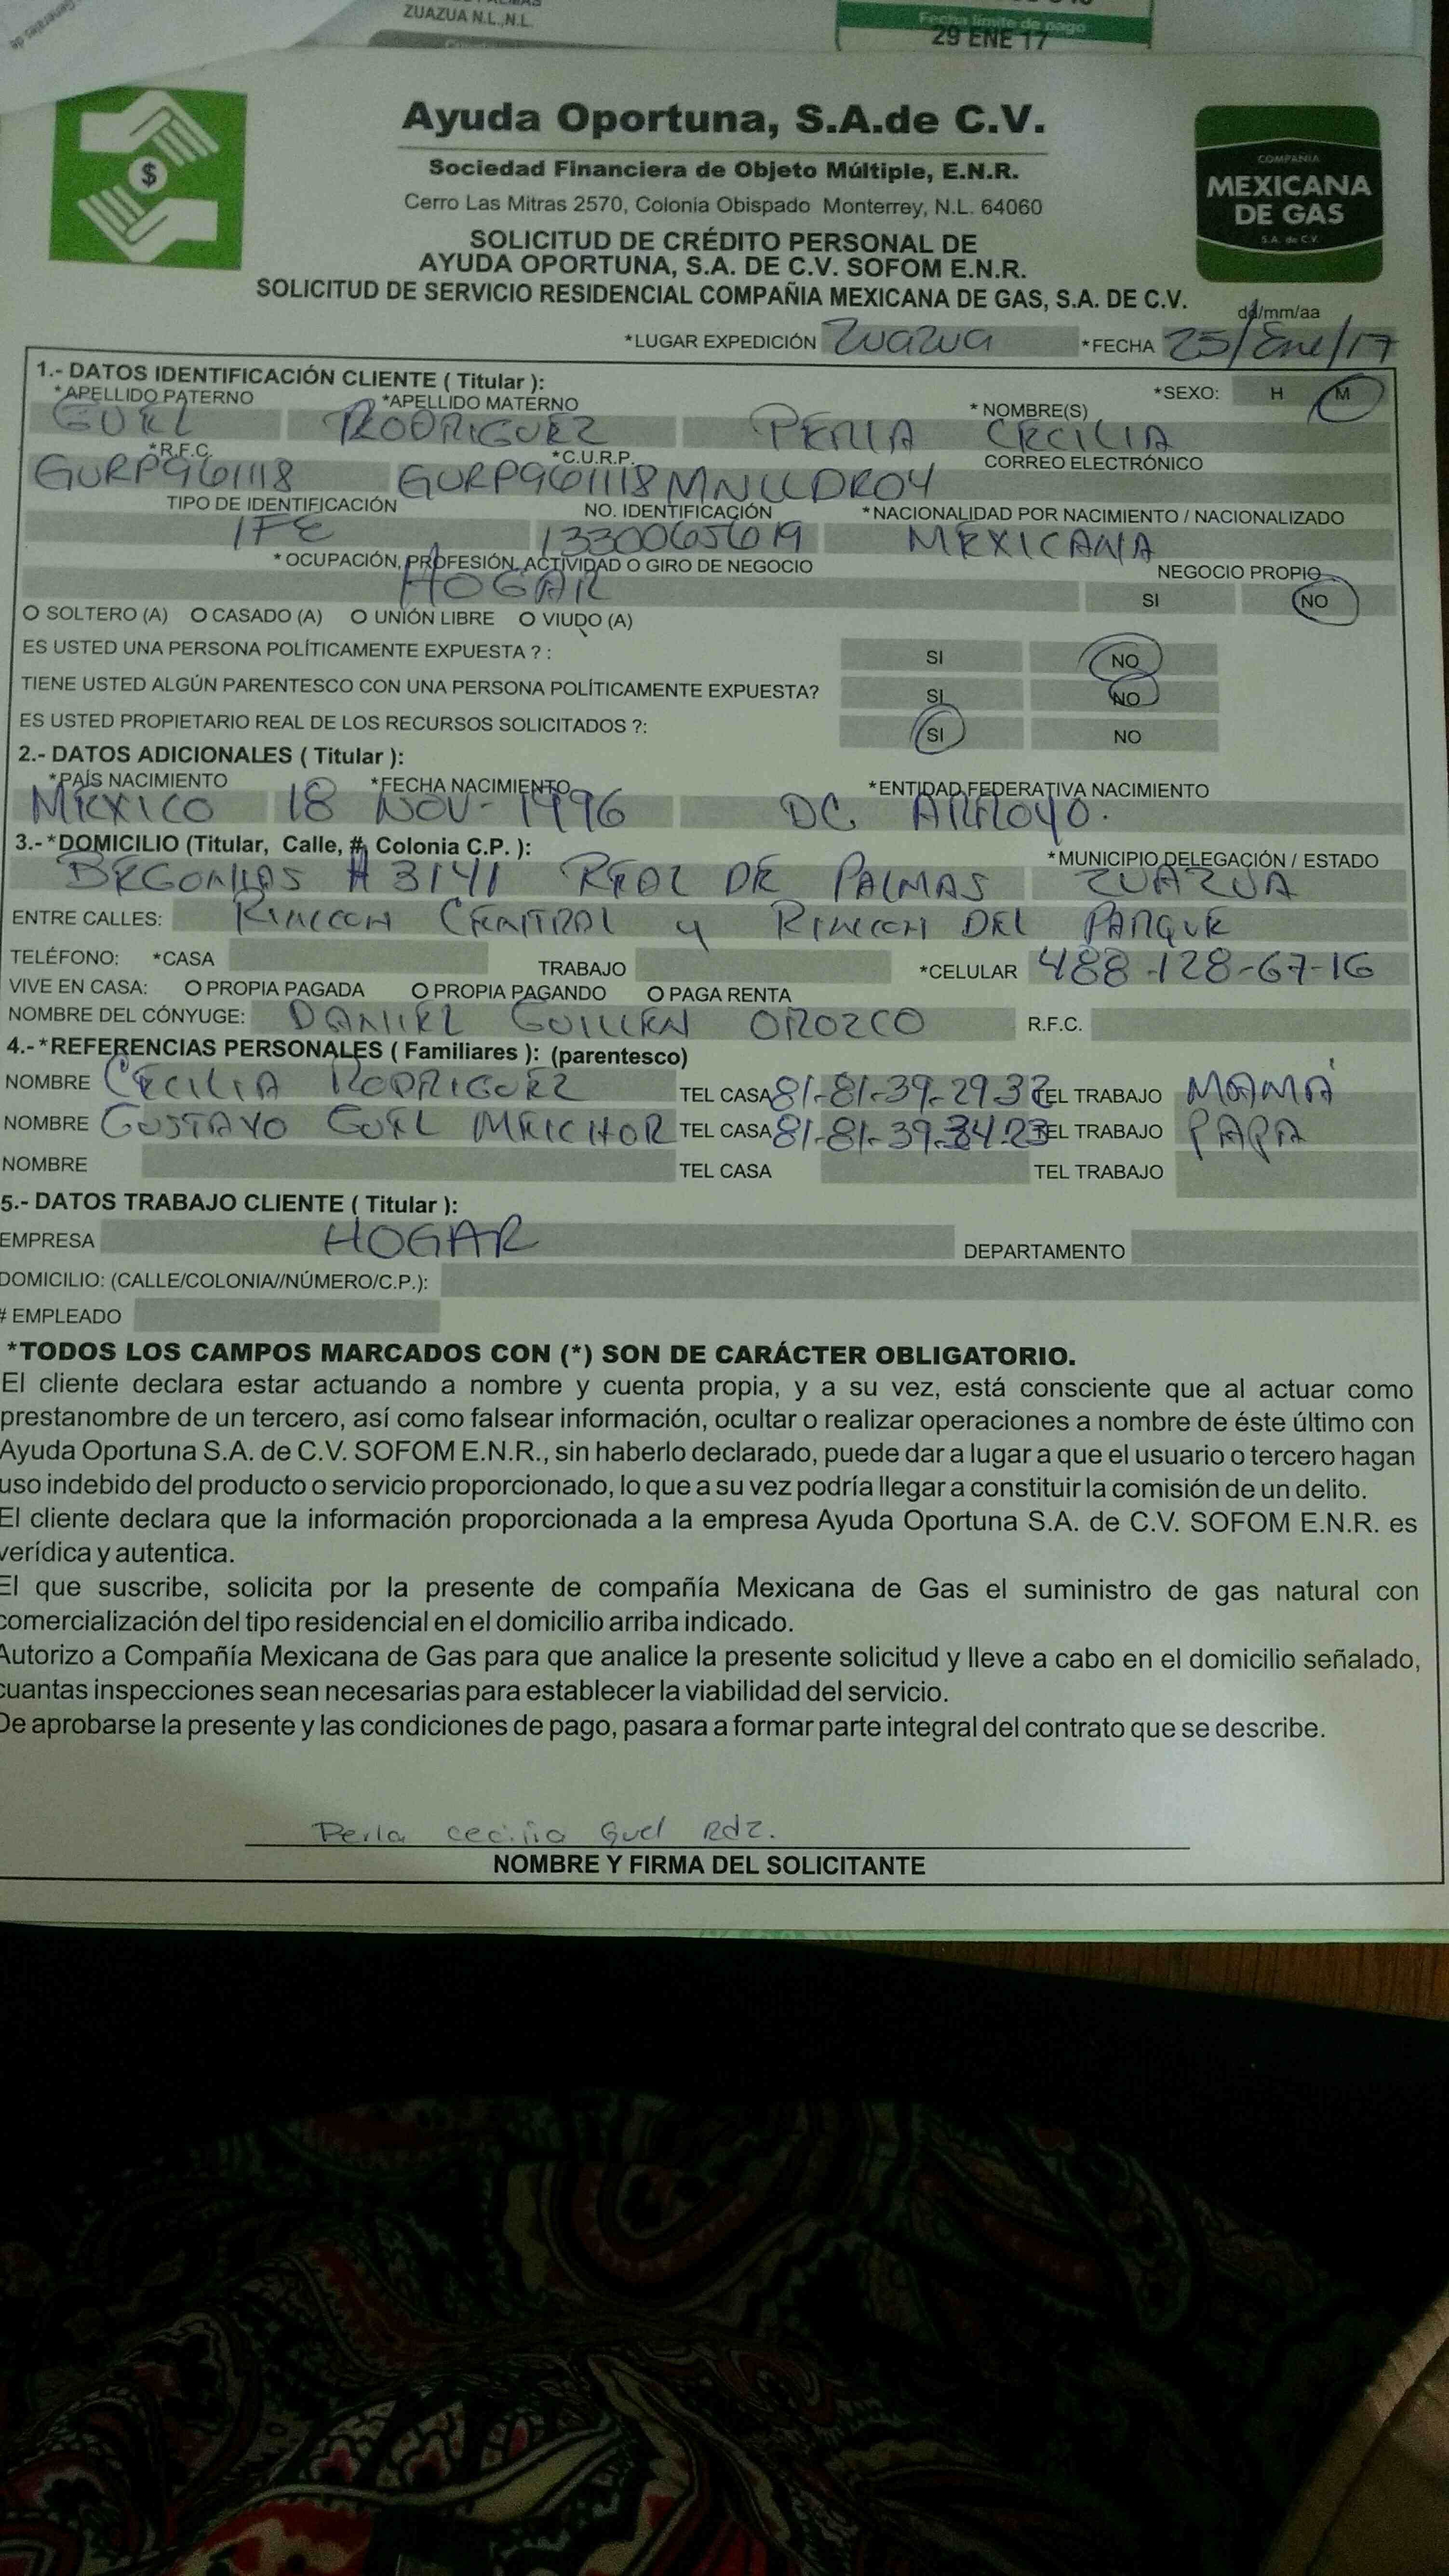 ZUAZUA N.L.,N.L.
Fecha límite de pago
29 ENE 17
Ayuda Oportuna, S.A.de C.V.
Sociedad Financiera de Objeto Múltiple, E.N.R.
Cerro Las Mitras 2570, Colonia Obispado Monterrey, N.L. 64060
COMPAÑIA
MEXICANA
DE GAS
S.A. de C.V.
SOLICITUD DE CRÉDITO PERSONAL DE
AYUDA OPORTUNA, S.A. DE C.V. SOFOM E.N.R.
SOLICITUD DE SERVICIO RESIDENCIAL COMPAÑIA MEXICANA DE GAS, S.A. DE C.V.
dd/mm/aa
*LUGAR EXPEDICIÓN ZUAZUA *FECHA 25/Ene/17
1.- DATOS IDENTIFICACIÓN CLIENTE ( Titular ): *SEXO: H M
*APELLIDO PATERNO *APELLIDO MATERNO * NOMBRE(S)
GUEL RODRIGUEZ PERLA CECILIA
*R.F.C. *C.U.R.P. CORREO ELECTRÓNICO
GURP961118 GURP961118MNLLDR04
TIPO DE IDENTIFICACIÓN NO. IDENTIFICACIÓN *NACIONALIDAD POR NACIMIENTO / NACIONALIZADO
IFE 1330065619 MEXICANA
* OCUPACIÓN, PROFESIÓN, ACTIVIDAD O GIRO DE NEGOCIO NEGOCIO PROPIO
HOGAR SI NO
O SOLTERO (A) O CASADO (A) O UNIÓN LIBRE O VIUDO (A)
ES USTED UNA PERSONA POLÍTICAMENTE EXPUESTA ? : SI NO
TIENE USTED ALGÚN PARENTESCO CON UNA PERSONA POLÍTICAMENTE EXPUESTA? SI NO
ES USTED PROPIETARIO REAL DE LOS RECURSOS SOLICITADOS ?: SI NO
2.- DATOS ADICIONALES ( Titular ):
*PAÍS NACIMIENTO *FECHA NACIMIENTO *ENTIDAD FEDERATIVA NACIMIENTO
MEXICO 18 NOV- 1996 DC. ARROYO.
3.-*DOMICILIO (Titular, Calle, #, Colonia C.P. ): *MUNICIPIO DELEGACIÓN / ESTADO
BEGONIAS # 3141 REAL DE PALMAS ZUAZUA
ENTRE CALLES: RINCON CENTRAL y RINCON DEL PARQUE
TELÉFONO: *CASA TRABAJO *CELULAR 488-128-67-16
VIVE EN CASA: O PROPIA PAGADA O PROPIA PAGANDO O PAGA RENTA
NOMBRE DEL CÓNYUGE: DANIEL GUILLEN OROZCO R.F.C.
4.-*REFERENCIAS PERSONALES ( Familiares ): (parentesco)
NOMBRE CECILIA RODRIGUEZ TEL CASA 81-81-39-29-32 TEL TRABAJO MAMÁ
NOMBRE GUSTAVO GUEL MELCHOR TEL CASA 81-81-39-34-23 TEL TRABAJO PAPA
NOMBRE TEL CASA TEL TRABAJO
5.- DATOS TRABAJO CLIENTE ( Titular ):
EMPRESA HOGAR DEPARTAMENTO
DOMICILIO: (CALLE/COLONIA//NÚMERO/C.P.):
# EMPLEADO
*TODOS LOS CAMPOS MARCADOS CON (*) SON DE CARÁCTER OBLIGATORIO.
El cliente declara estar actuando a nombre y cuenta propia, y a su vez, está consciente que al actuar como
prestanombre de un tercero, así como falsear información, ocultar o realizar operaciones a nombre de éste último con
Ayuda Oportuna S.A. de C.V. SOFOM E.N.R., sin haberlo declarado, puede dar a lugar a que el usuario o tercero hagan
uso indebido del producto o servicio proporcionado, lo que a su vez podría llegar a constituir la comisión de un delito.
El cliente declara que la información proporcionada a la empresa Ayuda Oportuna S.A. de C.V. SOFOM E.N.R. es
verídica y autentica.
El que suscribe, solicita por la presente de compañía Mexicana de Gas el suministro de gas natural con
comercialización del tipo residencial en el domicilio arriba indicado.
Autorizo a Compañía Mexicana de Gas para que analice la presente solicitud y lleve a cabo en el domicilio señalado,
cuantas inspecciones sean necesarias para establecer la viabilidad del servicio.
De aprobarse la presente y las condiciones de pago, pasara a formar parte integral del contrato que se describe.
Perla cecilia Guel Rdz.
NOMBRE Y FIRMA DEL SOLICITANTE